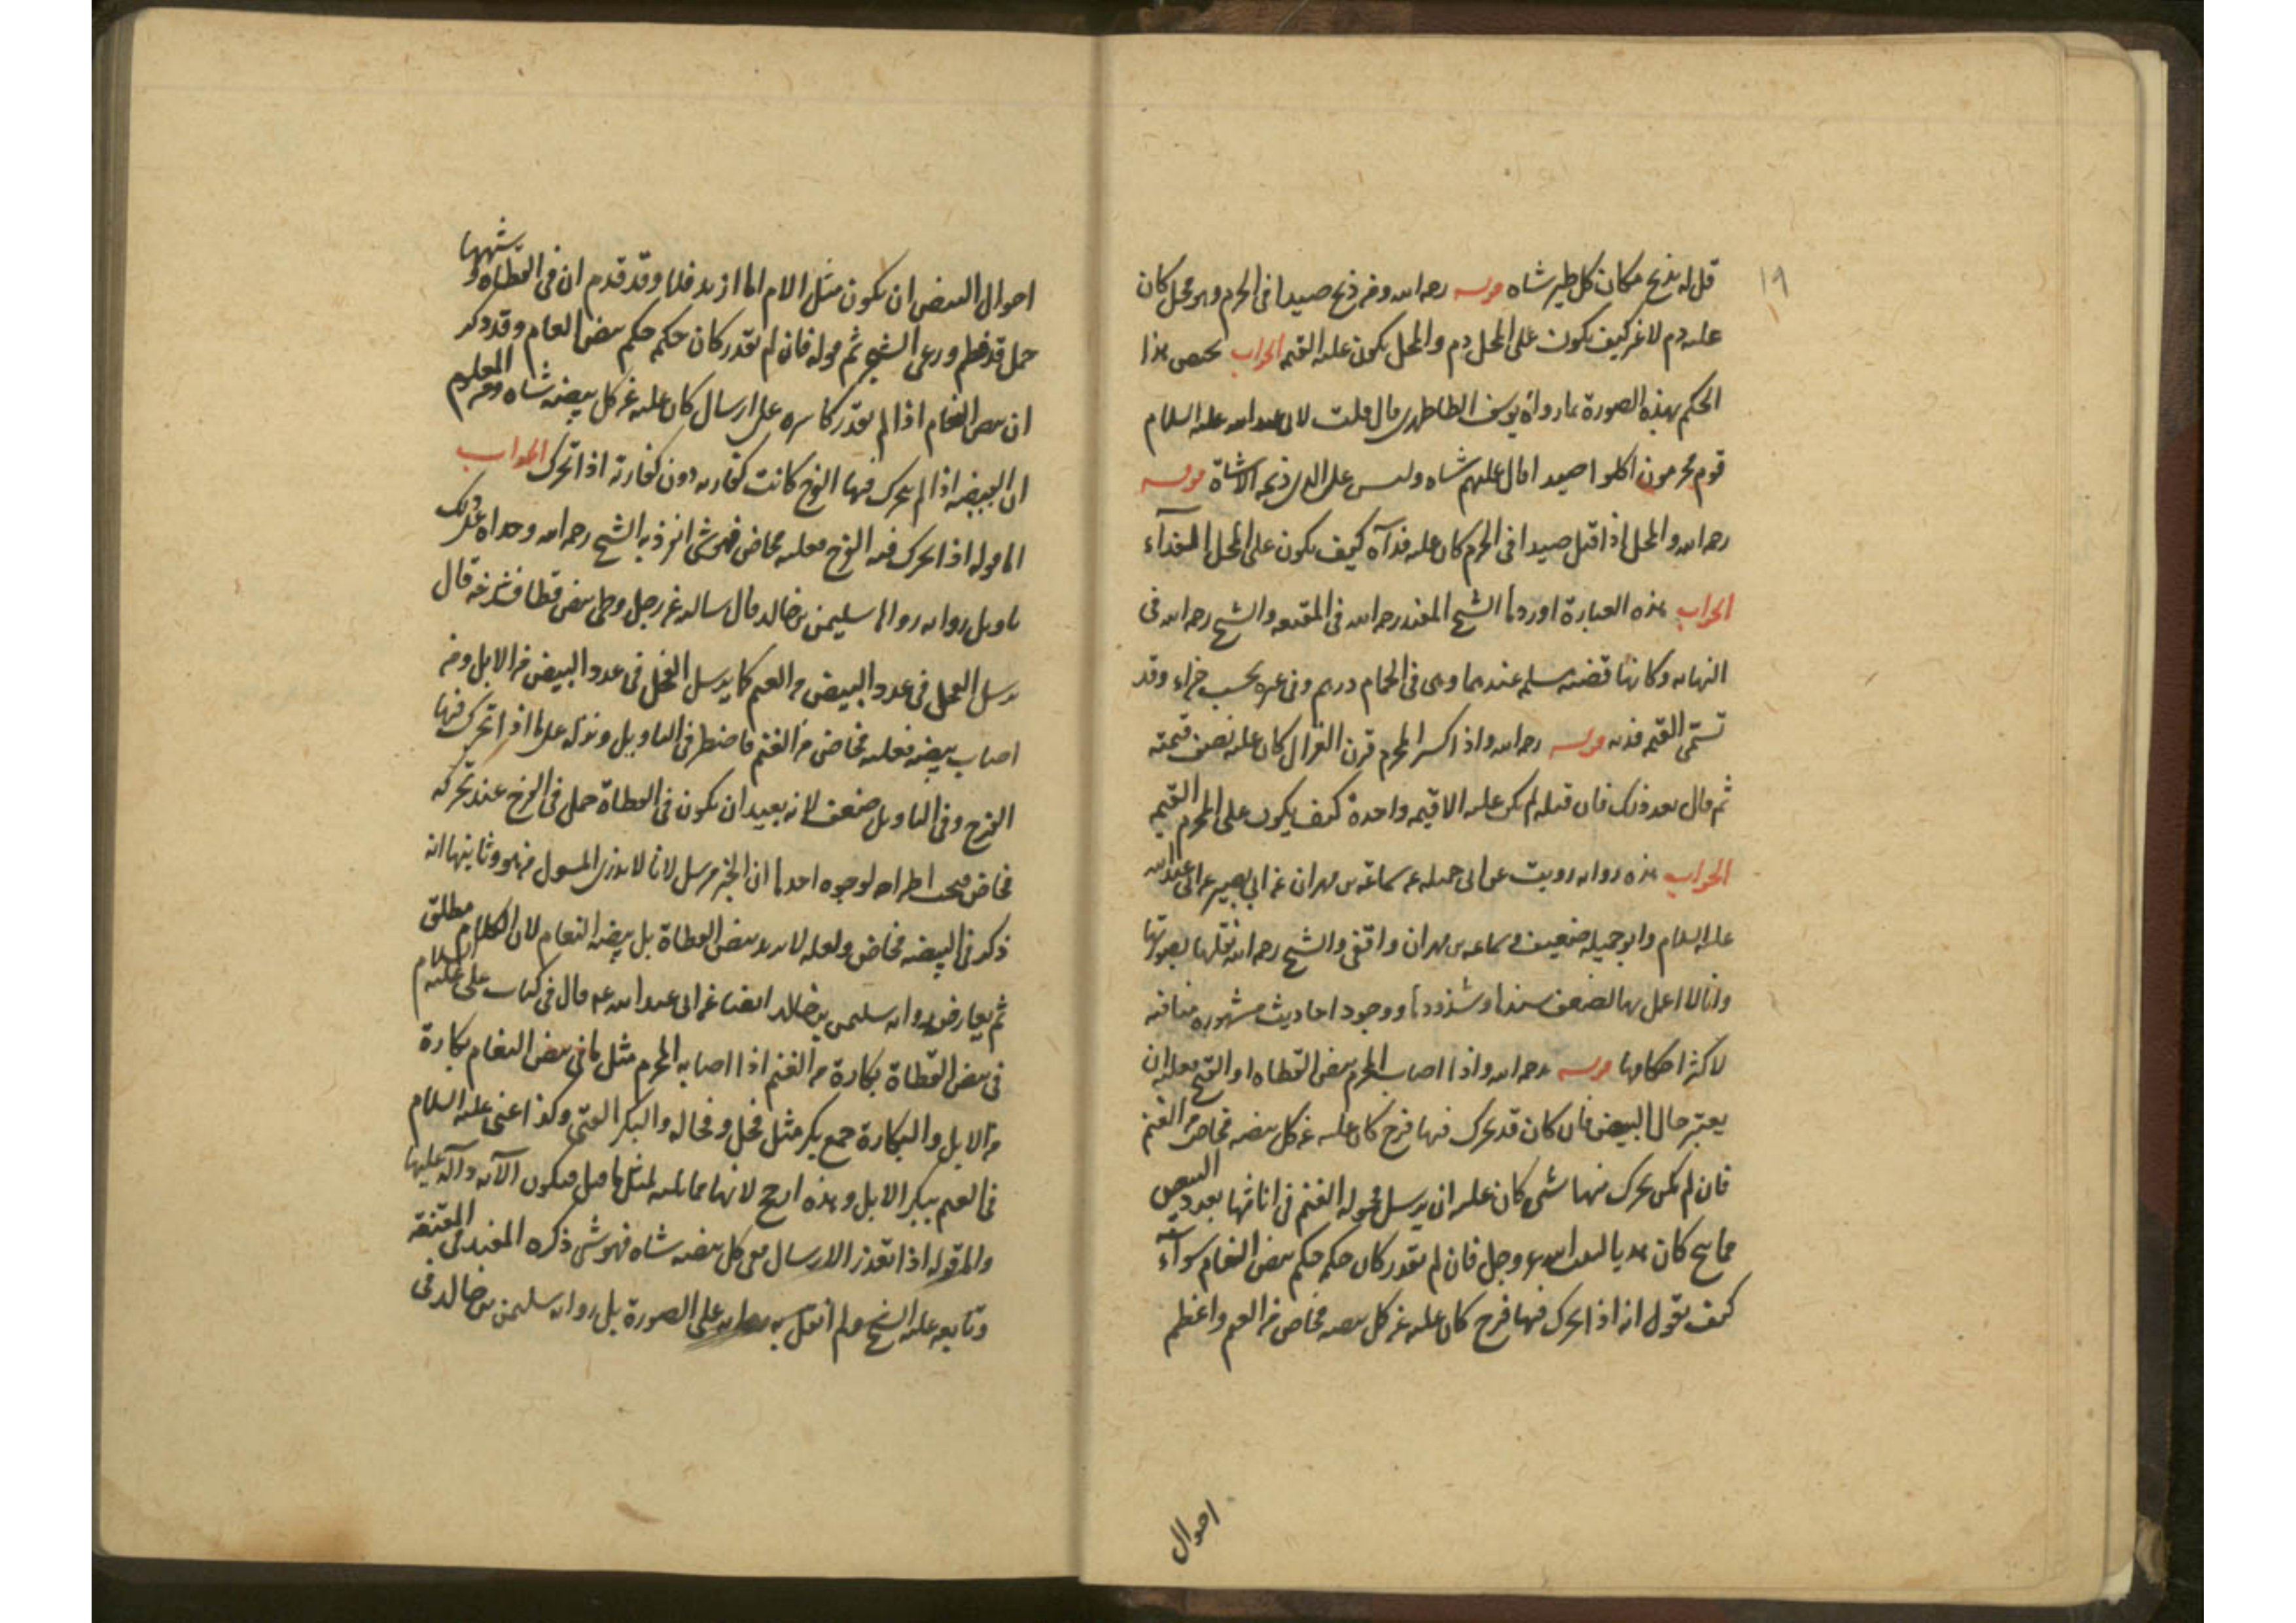 ١٩
قل له يذبح مكان كل طير شاه قوله رحمه الله ومن ذبح صيدا في الحرم وهو محل كان
عليه دم لا غير كيف يكون على المحل دم والمحل يكون عليه القيمه الجواب يختص هذا
الحكم بهذه الصورة بما رواه يوسف الطاطرى قال قلت لابى عبد الله عليه السلام
قوم محرمون اكلوا صيدا قال عليهم شاه وليس على الذى ذبحه الا شاة قوله
رحمه الله والمحل اذا قتل صيدا في الحرم كان عليه فدآه كيف يكون على المحل الفدآء
الجواب هذه العبارة اوردها الشيخ المفيد رحمه الله في المقنعه والشيخ رحمه الله في
النهايه وكانها قضيه مسلمه عندهما وهى في الحمام درهم وفى غيره بحسب جزاء وقد
تسمى القيمه فديه قوله رحمه الله واذا كسر المحرم قرن الغزال كان عليه نصف قيمته
ثم قال بعد ذلك فان قتله لم يكن عليه الا قيمه واحدة كيف يكون على المحرم القيمه
الجواب هذه روايه رويت عن ابى جميله عن سماعه بن مهران عن ابي بصير عن ابى عبد الله
عليه السلام وابو جميله ضعيف وسماعه بن مهران واقفى والشيخ رحمه الله نقلها بصورتها
وانا لا اعمل بها لضعف سندها وشذوذها ووجود احاديث مشهوره منافيه
لاكثر احكامها قوله رحمه الله واذا اصاب المحرم بيض القطاه او القبج فعليه ان
يعتبر حال البيض فان كان قد تحرك فيها فرخ كان عليه عن كل بيضه مخاض من الغنم
فان لم يكن تحرك فيها شى كان عليه ان يرسل فحوله الغنم في اناثها بعدد البيض
فما نتج كان هديا لبيت الله عز وجل فان لم يقدر كان حكمه حكم بيض النعام سوآء
كيف يقول انه اذا تحرك فيها فرخ كان عليه عن كل بيضه مخاض من الغنم واعظم
احوال
احوال البيض ان يكون مثل الام اما ازيد فلا وقد قدم ان في القطاه وشبهها
حمل قد فطم ورعى الشجر ثم قوله فان لم يقدر كان حكمه حكم بيض النعام وقد ذكر
ان بيض النعام اذا لم يقدر كاسره على ارسال كان عليه عن كل بيضه شاه ومن المعلوم
ان البيضه اذا لم يتحرك فيها الفرخ كانت كفارته دون كفارته اذا تحرك الجواب
اما قوله اذا تحرك فيه الفرخ فعليه مخاض فهو شى انفرد به الشيخ رحمه الله وحداه على ذلك
تاويل روايه رواها سليمن بن خالد قال سالته عن رجل وطى بيض قطاه فشدخه قال
يرسل الفحل في عدد البيض من الغنم كما يرسل الفحل في عدد البيض من الابل ومن
اصاب بيضه فعليه مخاض من الغنم فاضطر في التاويل ونزله على ما اذا تحرك فيها
الفرخ وفى التاويل ضعف لانه بعيد ان يكون في القطاة حمل وفى الفرخ عند تحركه
مخاض فيجب اطراحه لوجوه احدها ان الخبر مرسل لانا لا ندرى المسول من هو وثانيها انه
ذكر في البيضه مخاض ولعله لا يريد بيض القطاة بل بيضه النعام لان الكلام مطلق
ثم يعارضه روايه سليمن بن خالد ايضا عن ابى عبد الله ع قال في كتاب على عليه السلام
في بيض القطاة بكارة من الغنم اذا اصابه المحرم مثل ما في بيض النعام بكارة
من الابل والبكارة جمع بكر مثل فحل وفحاله والبكر الفتى وكذا عنى عليه السلام
في الغنم ببكر الابل وهذه ارجح لانها مماثله لمثل ما قبل فيكون الآيه دآلة عليها
واما قوله اذا تعذر الارسال ففى كل بيضه شاه فهو شى ذكره المفيد في المقنعه
وتابعه عليه الشيخ ولم انقل به روايه على الصورة بل روايه سليمن بن خالد في